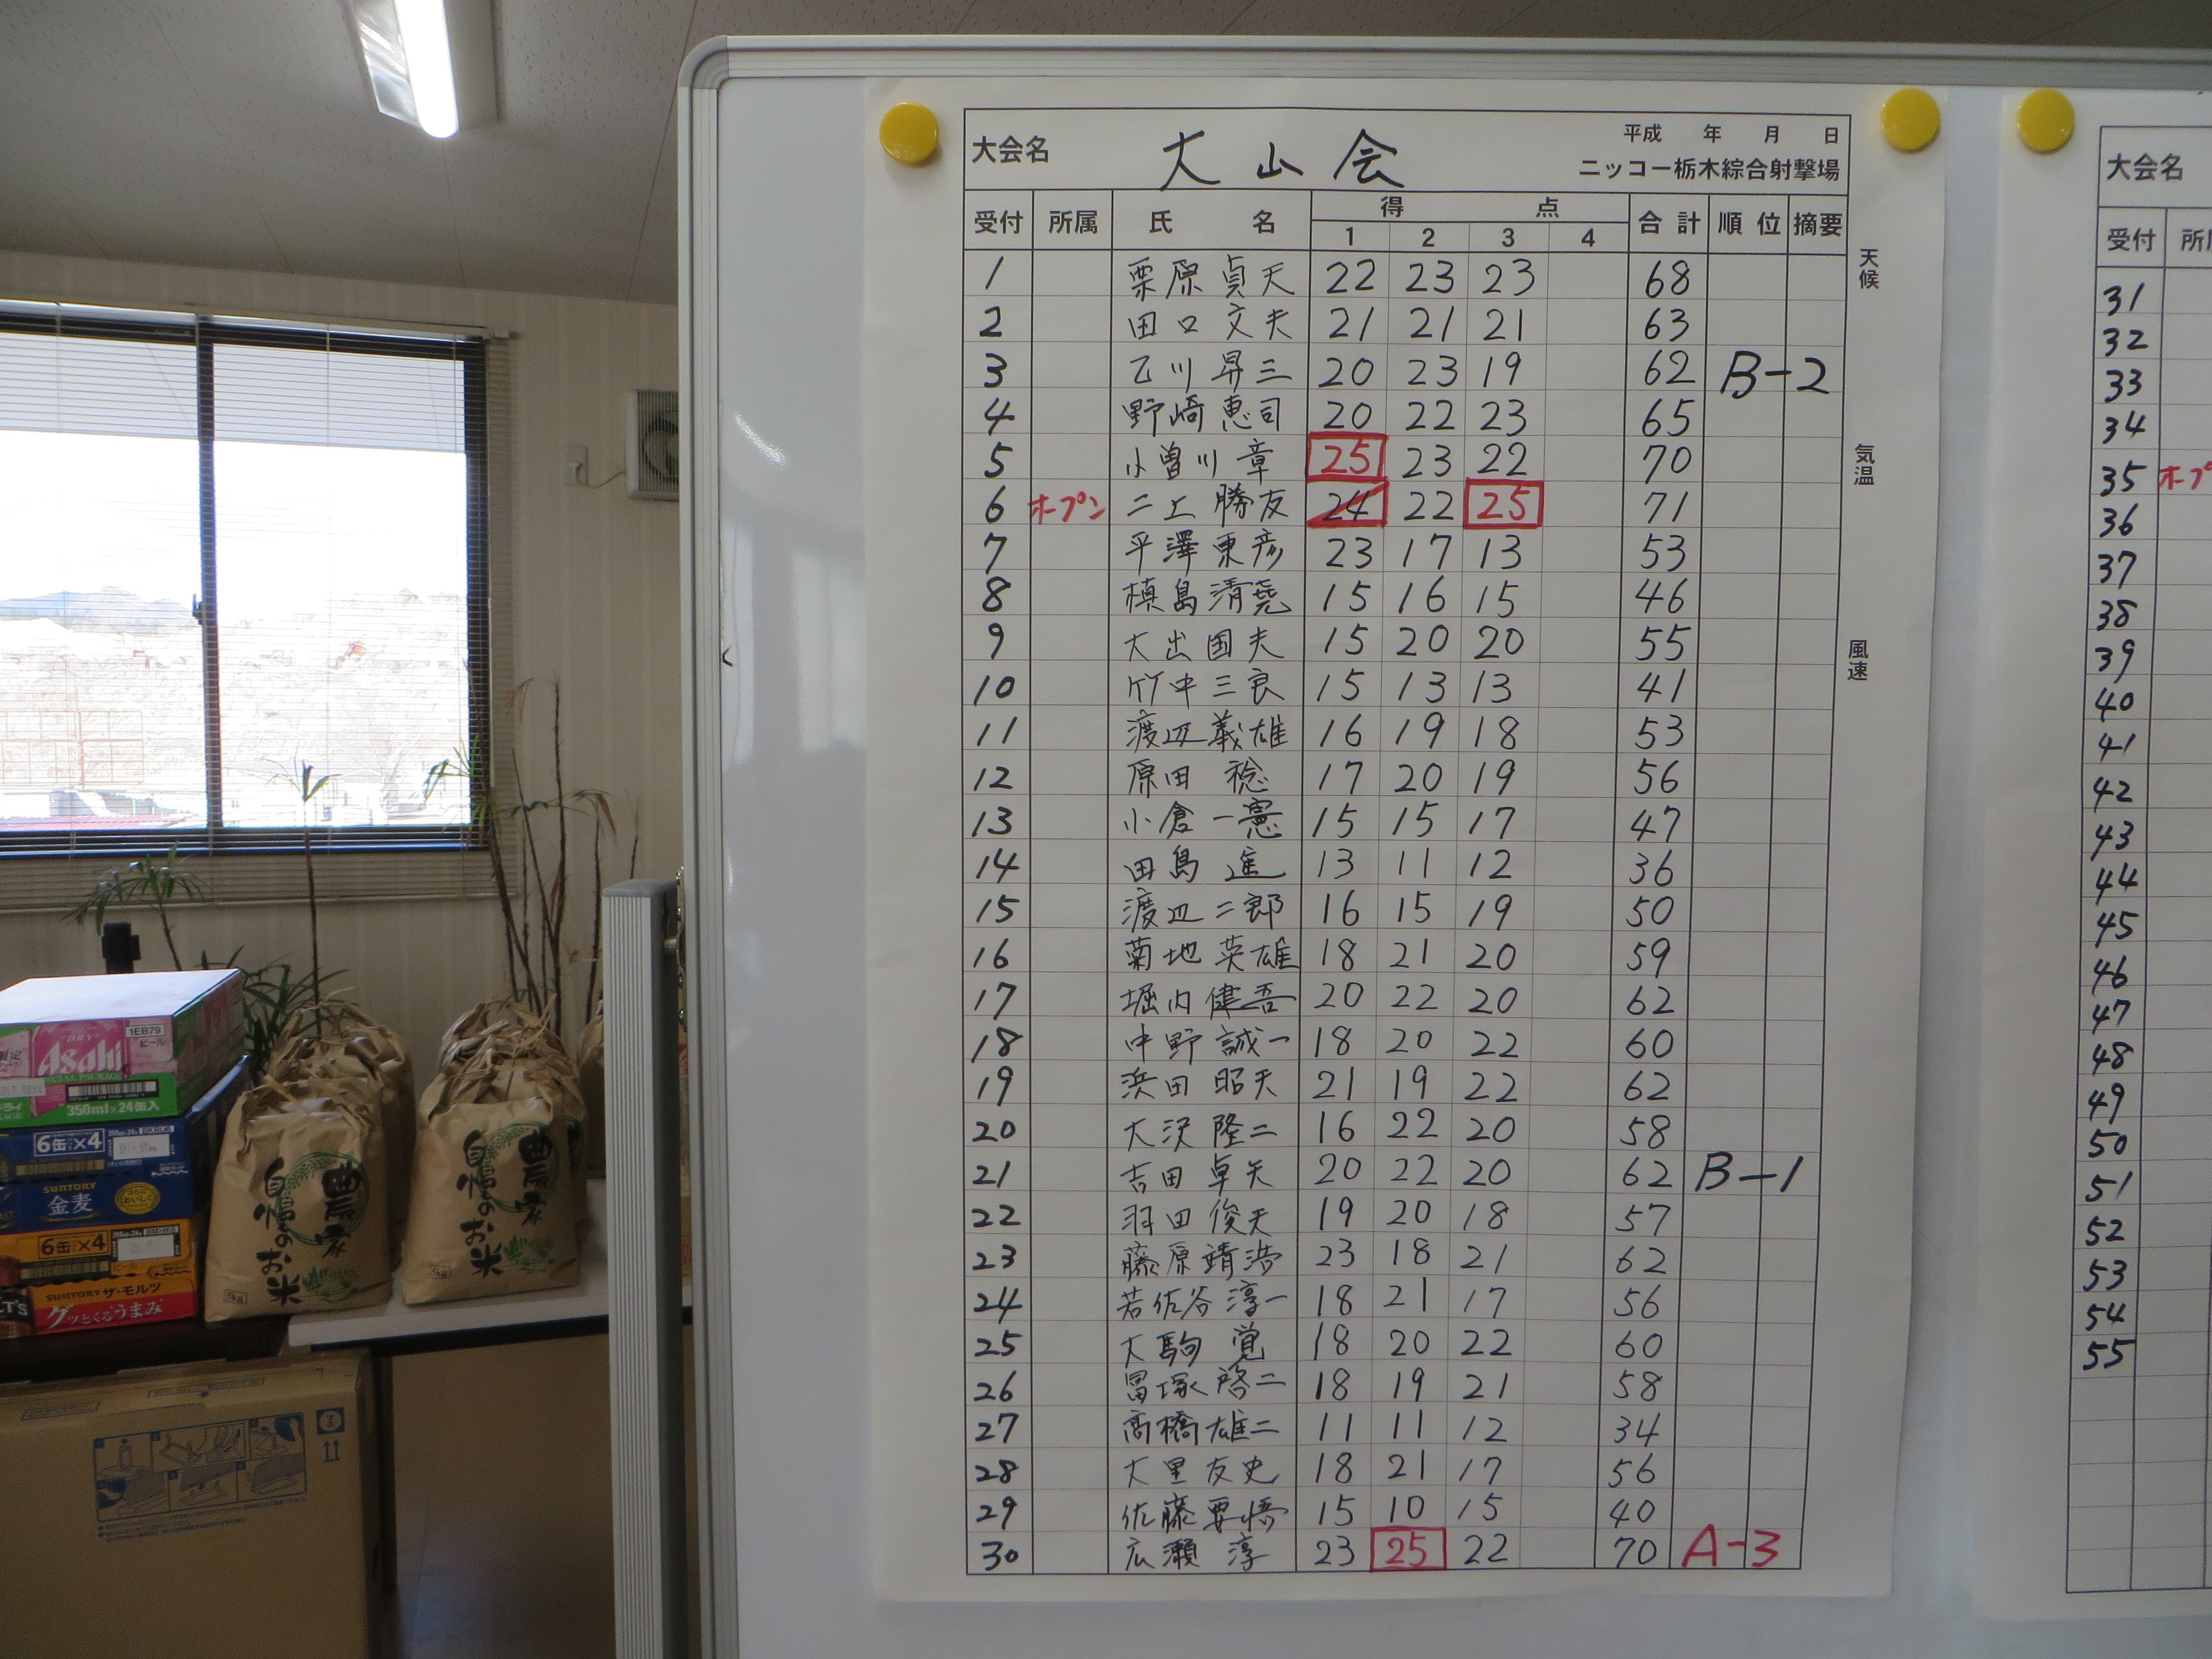 大会名 大山会 平成 年 月 日
ニッコー栃木綜合射撃場
受付 所属 氏 名 得 点 合計 順位 摘要
1 2 3 4
1 栗原貞夫 22 23 23 68
2 田口文夫 21 21 21 63
3 乙川昇三 20 23 19 62 B-2
4 野崎恵司 20 22 23 65
5 小曽川章 25 23 22 70
6 オープン 二上勝友 24 22 25 71
7 平澤東彦 23 17 13 53
8 槙島清尭 15 16 15 46
9 大出国夫 15 20 20 55
10 竹中三良 15 13 13 41
11 渡辺義雄 16 19 18 53
12 原田稔 17 20 19 56
13 小倉一憲 15 15 17 47
14 田島進 13 11 12 36
15 渡辺二郎 16 15 19 50
16 菊地英雄 18 21 20 59
17 堀内健吾 20 22 20 62
18 中野誠一 18 20 22 60
19 浜田昭夫 21 19 22 62
20 大沢隆二 16 22 20 58
21 吉田卓矢 20 22 20 62 B-1
22 羽田俊夫 19 20 18 57
23 藤原靖浩 23 18 21 62
24 若佐谷淳一 18 21 17 56
25 大駒覚 18 20 22 60
26 冨塚啓二 18 19 21 58
27 高橋雄二 11 11 12 34
28 大里友史 18 21 17 56
29 佐藤要悟 15 10 15 40
30 広瀬淳 23 25 22 70 A-3
天候
気温
風速
大会名
受付
31
32
33
34
35
36
37
38
39
40
41
42
43
44
45
46
47
48
49
50
51
52
53
54
55
DRY
Asahi
1EB79
ビール
350ml×24缶入
6缶×4
SUNTORY
金麦
6缶×4
SUNTORY ザ・モルツ
グッとくるうまみ
農家
自慢のお米
5kg
農家
自慢のお米